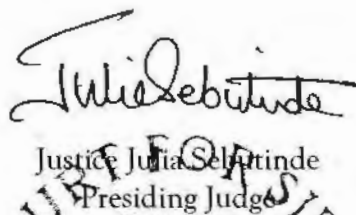 Julia Sebutinde
Justice Julia Sebutinde
Presiding Judge
COURT FOR SIE